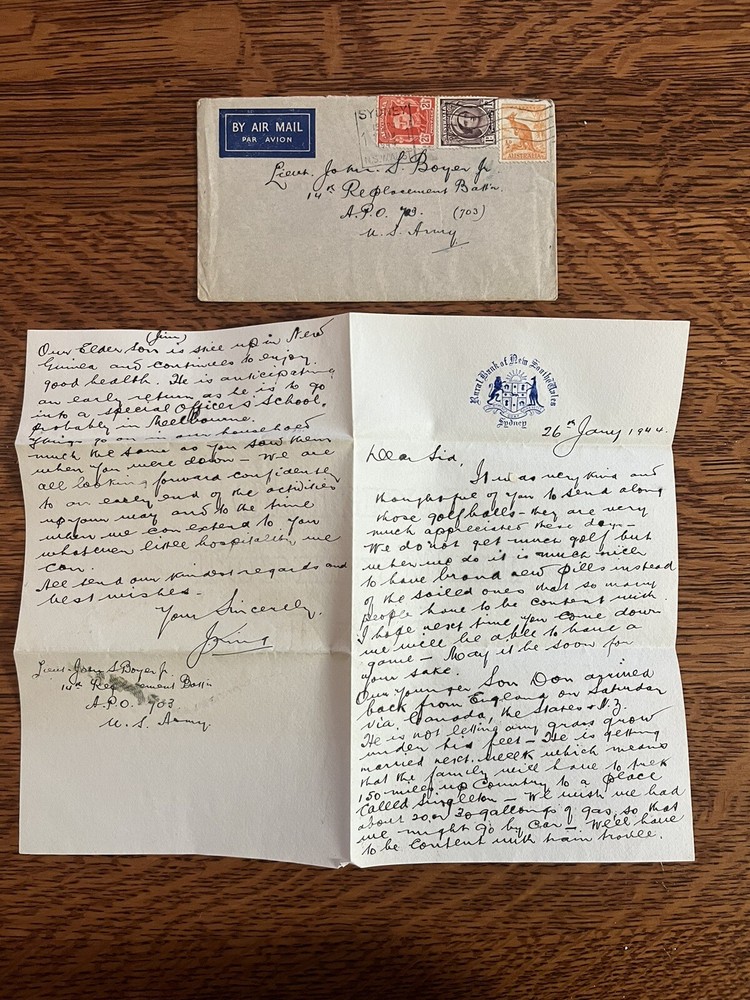 BY AIR MAIL
PAR AVION
SYDNEY
AUSTRALIA
Lieut. John S. Boyer Jr.
14th Replacement Batt'n
A.P.O. 703. (703)
U.S. Army
Rural Bank of New South Wales
Sydney
26th Jany 1944.
Dear Sid,
It was very kind and
thoughtful of you to send along
those golf balls - they are very
much appreciated these days -
We do not get much golf but
when we do it is much nicer
to have brand new pills instead
of the soiled ones that so many
people have to be content with.
I hope next time you come down
we will be able to have a
game - May it be soon for
your sake.
Our younger Son Don arrived
back from England on Saturday
via Canada, the States & N.Z.
He is not letting any grass grow
under his feet - He is getting
married next week which means
that the family will have to trek
150 miles up Country to a place
called Singleton - We wish we had
about 20 or 30 gallons of gas, so that
we might go by Car - We'll have
to be content with train travel.
(Jim)
Our Elder Son is still up in New
Guinea and continues to enjoy
good health. He is anticipating
an early return as he is to go
into a special Officers' School,
probably in Melbourne.
Things go on in our household
much the same as you saw them
when you were down - We are
all looking forward confidently
to an early end of the activities
up your way and to the time
when we can extend to you
whatever little hospitality we
can.
All send our kindest regards and
best wishes -
Your Sincerely,
Lieut. John S Boyer Jr.
14th Replacement Batt'n
A.P.O. 703
U.S. Army.